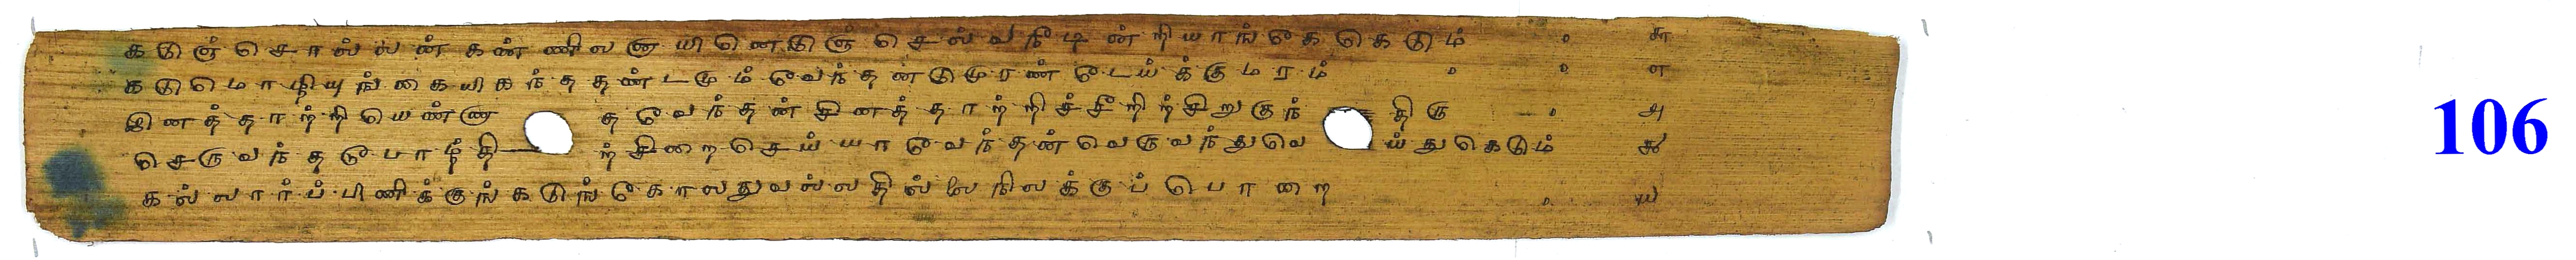 கடுஞ் சொல்லன் கண்ணிலனாயினெடுஞ் செல்வநீடின்றியாங்கே கெடும் ० ௬ 106
கடுமொழியுங்கையிகந்ததண்டமும் வேந்தனடுமுரண் டேய்க்குமரம் ० ० ௭
இனத்தாற்றியெண்ணாத வேந்தன் சினத்தாற்றிச்சீறிற்சிறுகுந்திரு ० ௮
செருவந்தபோழ்திற்சிறைசெய்யா வேந்தன்வெருவந்துவெய்துகெடும் ௯
கல்லார்ப்பிணிக்குங்கடுங்கோலதுவல்லதில்லை நிலக்குப் பொறை ० ௰